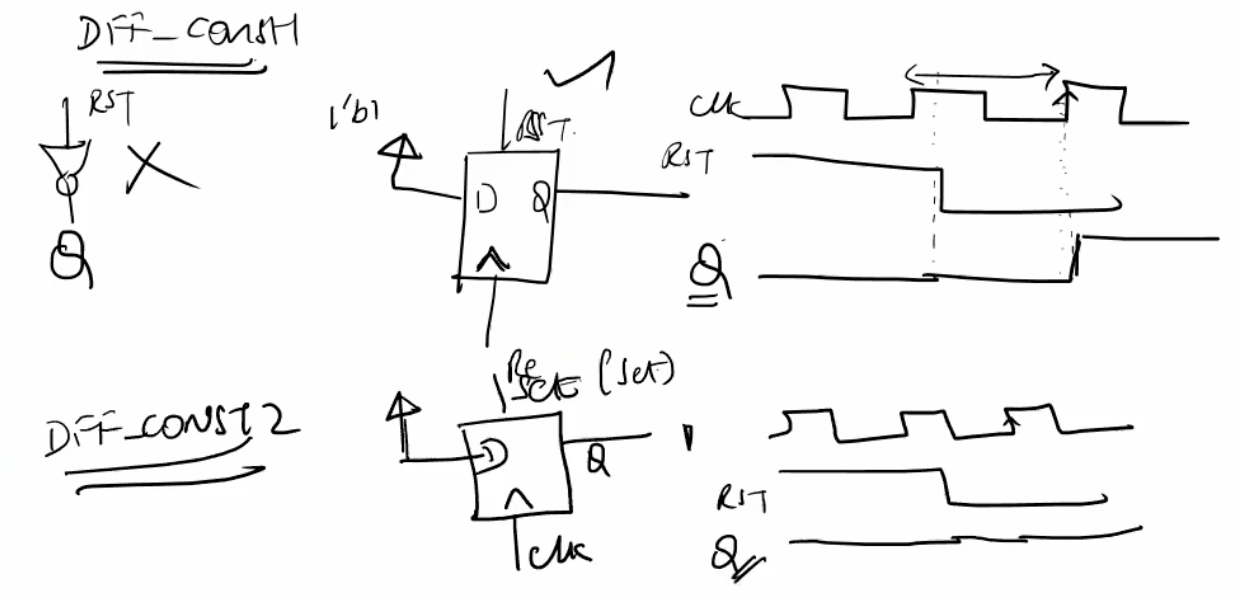 DIFF_CONST1
RST
Q
1'b1
RST.
D Q
CLK
RST
Q
DIFF_CONST2
Reset (Set)
D
Q
1
CLK
RST
Q